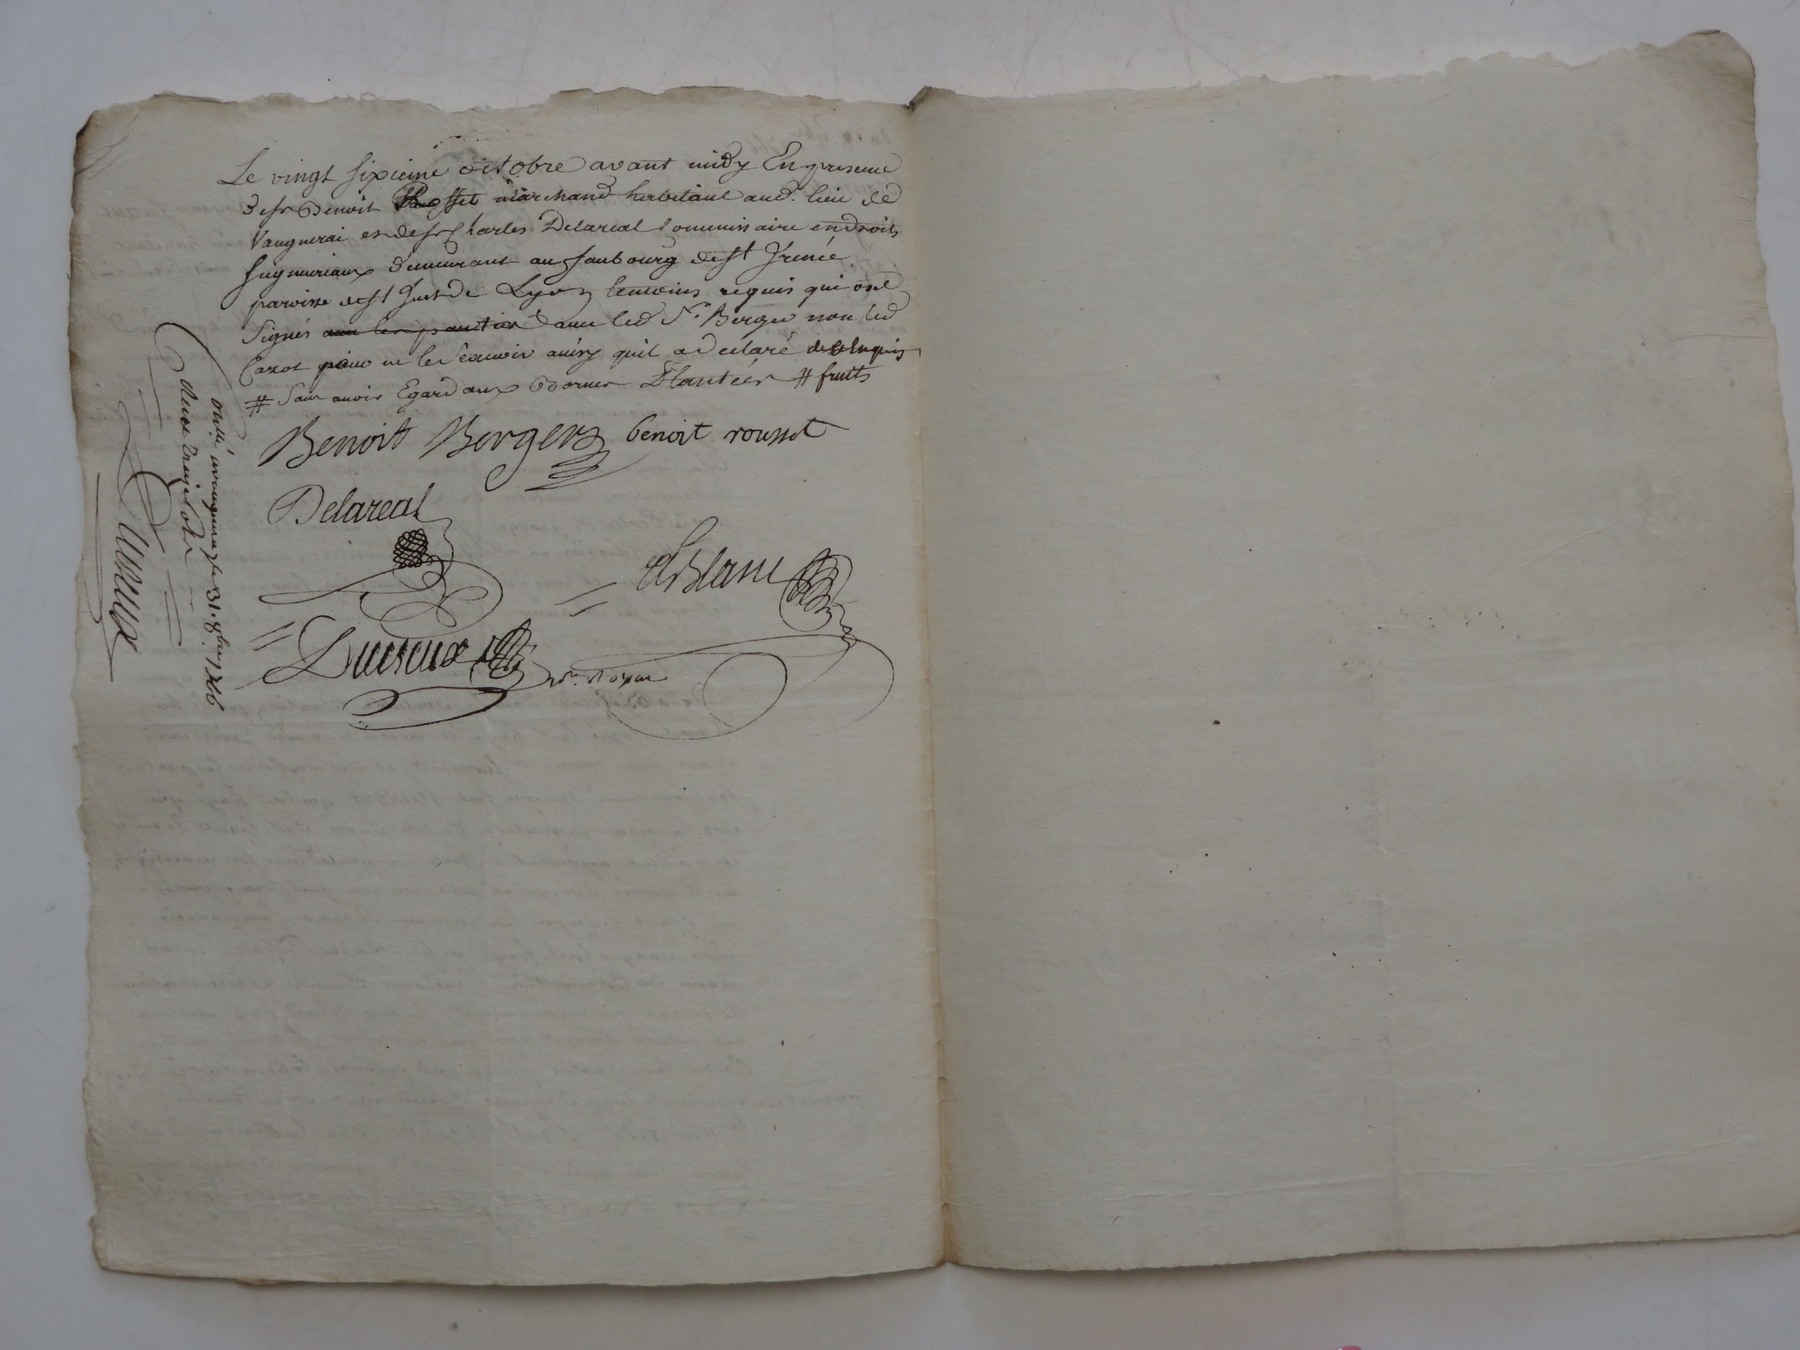 Le vingt sixieme octobre avant midy En presence
de sr Benoit Rosset marchand habitant aud. lieu de
Vaugnerai et de sr Charles Delareal Commissaire en droits
seigneuriaux demeurant au faubourg de st Irenée
paroisse de st Just de Lyon temoins requis qui ont
signés avec les parties avec led Sr. Berger non led
Cazot pour ne le scavoir ainsy quil a declaré de ce enquis
# sans avoir Egard aux Bornes Plantées # fruits
Benoit Berger benoit rousset
Delareal
LeBlanc
Ducreux
nre Royal
Du
Ducreux